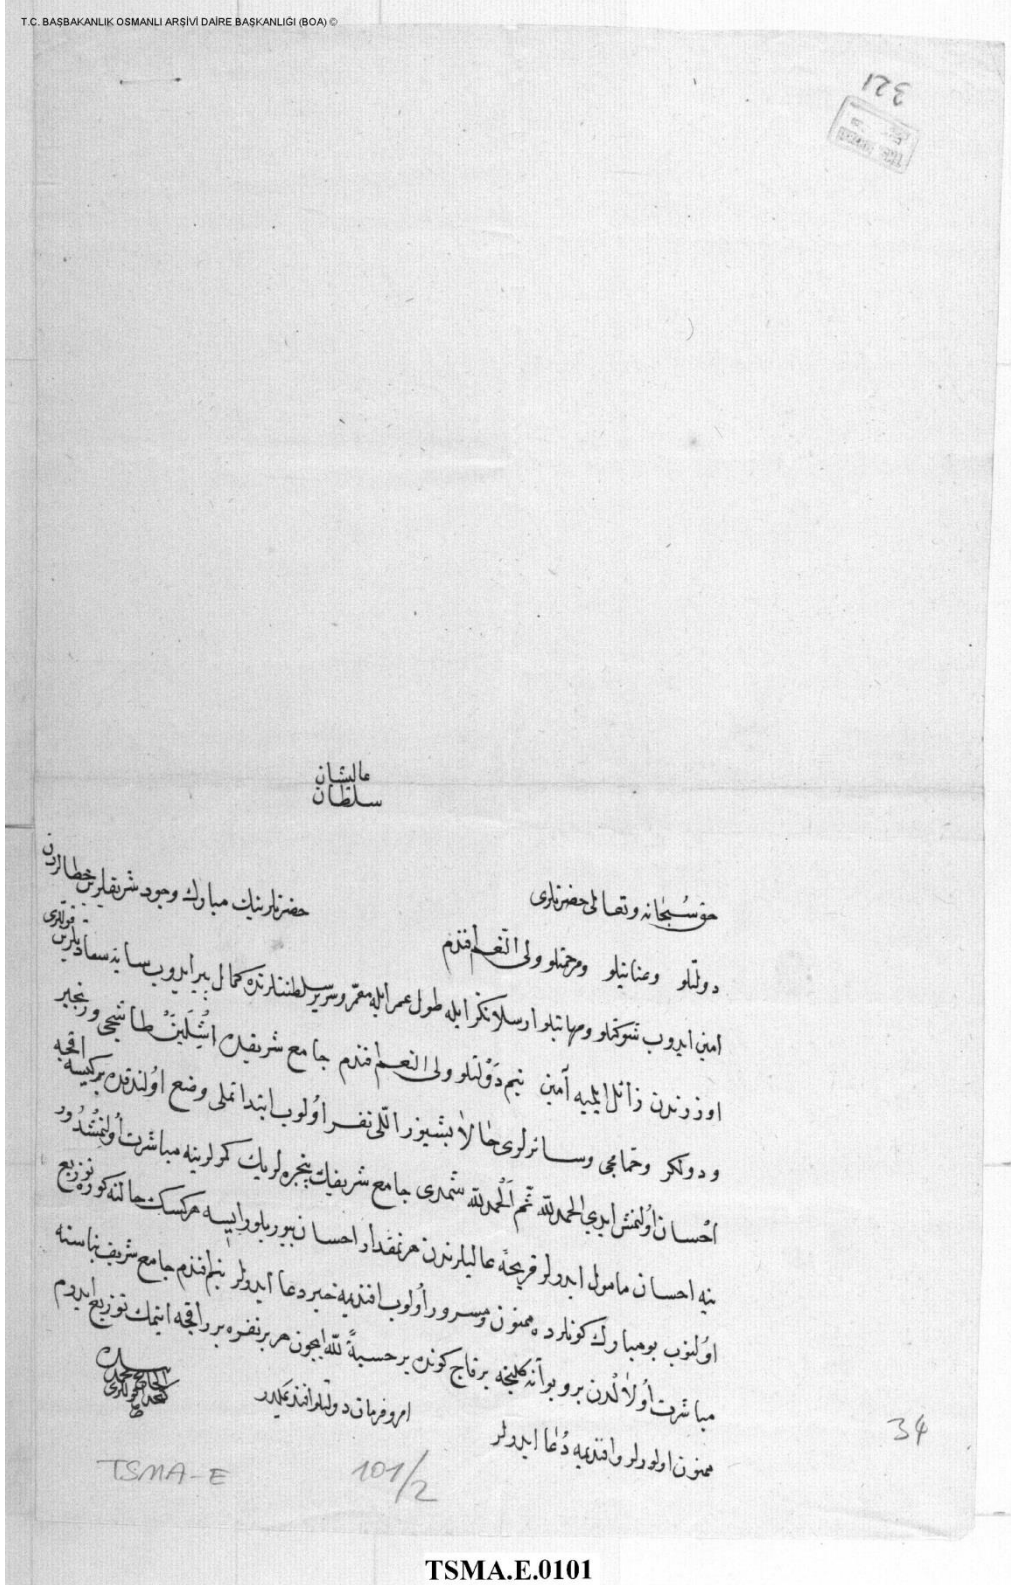 T.C. BAŞBAKANLIK OSMANLI ARŞİVİ DAİRE BAŞKANLIĞI (BOA) ©
321
عاليشان
سلطان
حق سبحانه وتعالى حضرتلرى حضرتلرينك مبارك وجود شريفلرين خطالردن
دولتلو وعنايتلو ومرحمتلو ولى النعم افندم
امين ايدوب شوكتلو ومهابتلو ارسلانكز ايله طول عمر ايله معمر وسرير سلطنتلرنده كمال پير ايدوب سايه سعادتلرين قوللرى
اوزرندن زائل ايلميه آمين بنم دولتلو ولى النعم افندم جامع شريفده ايشلين طاشجى ورنجبر
ودولكر وحمامجى وسائرلرى حالا بشيوز اللى نفر اولوب ابتدا تملى وضع اولندقده بر كيسه اقچه
احسان اولنمش ايدي الحمد لله ثم الحمد لله شمدى جامع شريفك پنجره لرينك كمرلرينه مباشرت اولنمشدور
ينه احسان مامول ايدرلر قريحه عاليلرندن هر نمقدار احسان بيوريلور ايسه هركسك حالنه كوره توزيع
اولنوب بو مبارك كونلرده ممنون ومسرور اولوب افنديمه خير دعا ايدرلر بنم افندم جامع شريف بناسنه
مباشرت اولالدن برو بو آنه كلنجه بر قاچ كونده بر حسبة لله ايچون هر بر نفره برر اقچه اتمك توزيع ايدرم
ممنون اولورلر وافنديمه دعا ايدرلر
امر وفرمان دولتلو افندمكدر
بنده
الحاج محمد
كتخدا قوللرى
34
TSMA-E 101/2
TSMA.E.0101